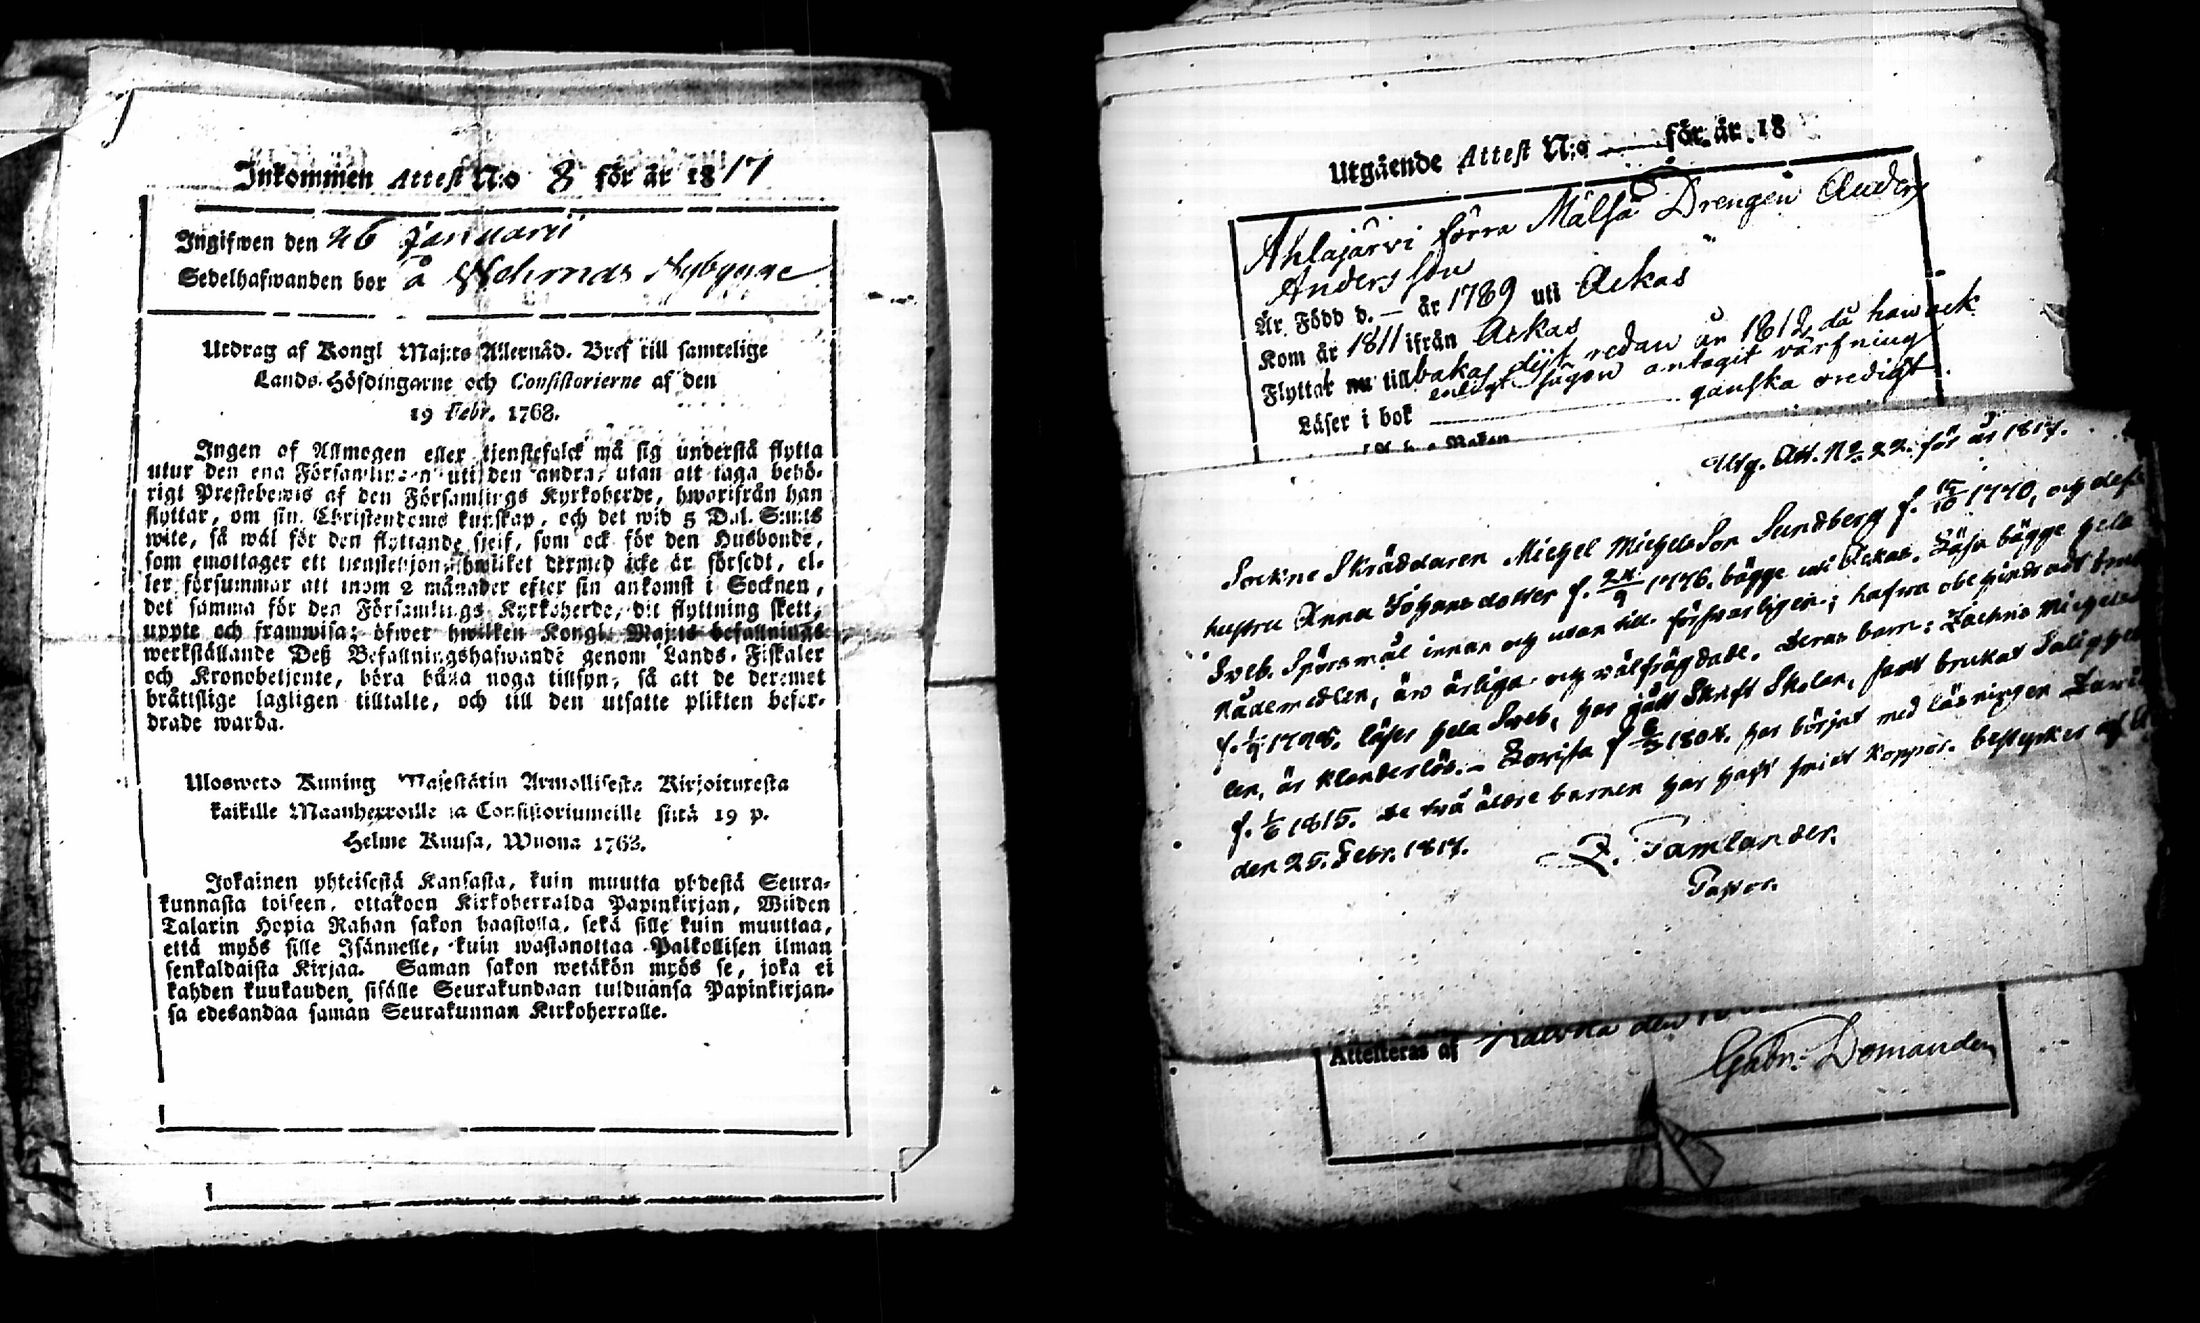 Inkommen Attest N:o 8 för år 1817
Ingifwen den 26 Januarii
Sedelhafwanden bor å Wehmas Nybygge
Utdrag af Kongl Maj:ts Allernåd. Bref till samtelige
Lands-Höfdingarne och Consistorierne af den
19 Febr. 1768.
Ingen of Allmogen eller tjenstefolck må sig understå flytta
utur den ena Församlingen uti den andra, utan att taga behö-
rigt Prestebewis af den Församlings Kyrkoherde, hwarifrån han
flyttar, om sin Christendoms kunskap, och det wid 5 Dal. S:mts
wite, så wäl för den flyttande sjelf, som ock för den Husbonde,
som emottager ett tienstehjon, hwilket dermed icke är försedt, el-
ler försummar att inom 2 månader efter sin ankomst i Socknen,
det samma för den Församlings Kyrkoherde, dit flyttning skett,
uppte och framwisa; öfwer hwilken Kongl. Maj:ts befallnings
werkställande Deß Befallningshafwande genom Lands-Fiskaler
och Kronobetjente, böra hålla noga tillsyn, så att de deremot
bråttslige lagligen tilltalte, och till den utsatte plikten befor-
drade warda.
Ulosweto Kuning Majestätin Armollisesta Kirjoituresta
kaikille Maanherroille ja Consistoriumeille siitä 19 p.
Helme Kuusa, Wuona 1768.
Jokainen yhteisestä Kansasta, kuin muutta yhdestä Seura-
kunnasta toiseen, ottakoon Kirkoherralda Papinkirjan, Wiiden
Talarin Hopia Rahan sakon haastolla, sekä sille kuin muuttaa,
että myös sille Isännelle, kuin wastanottaa Palkollisen ilman
senkaldaista Kirjaa. Saman sakon wetäkön myös se, joka ei
kahden kuukauden sisälle Seurakundaan tulduansa Papinkirjan-
sa edesandaa saman Seurakunnan Kirkoherralle.
Utgående Attest N:o för år 18
Ahlajärvi förra Mälsä Drengen Anders
Andersson
Är Född d. — år 1789 uti Ackas
Kom år 1811 ifrån Ackas
Flyttat nu till bakas dijt redan år 1812 då han ock
enligt sägen antagit värfning
Läser i bok ganska oredigt.
Utg. Att. N:o 22. för år 1817.
Sockne Skräddaren Michel Michelsson Sundberg f. 15/10 1770, och dess
hustru Anna Johansdotter f. 24/9 1776. bägge uti Ackas. Läsa bägge hela
Sveb. Spörsmål innan och utan till försvarligen; hafwa obehindradt
nådemedlen, äro ärliga och välfrägdade. Deras barn: Michels
f. 1/9 1798. läser hela Sveb, har gått Skrift Skolan, samt brukat Saliggö
len, är klanderlös. – Lovisa f 6/3 1804. har börjat med läsningen
f. 1/6 1815. De två äldre barnen har haft smitt koppor. bestyrker
den 25. Febr. 1817. Z. Tamlander.
Pastor.
Attesteras af Kalvola den
Gabr. Domander